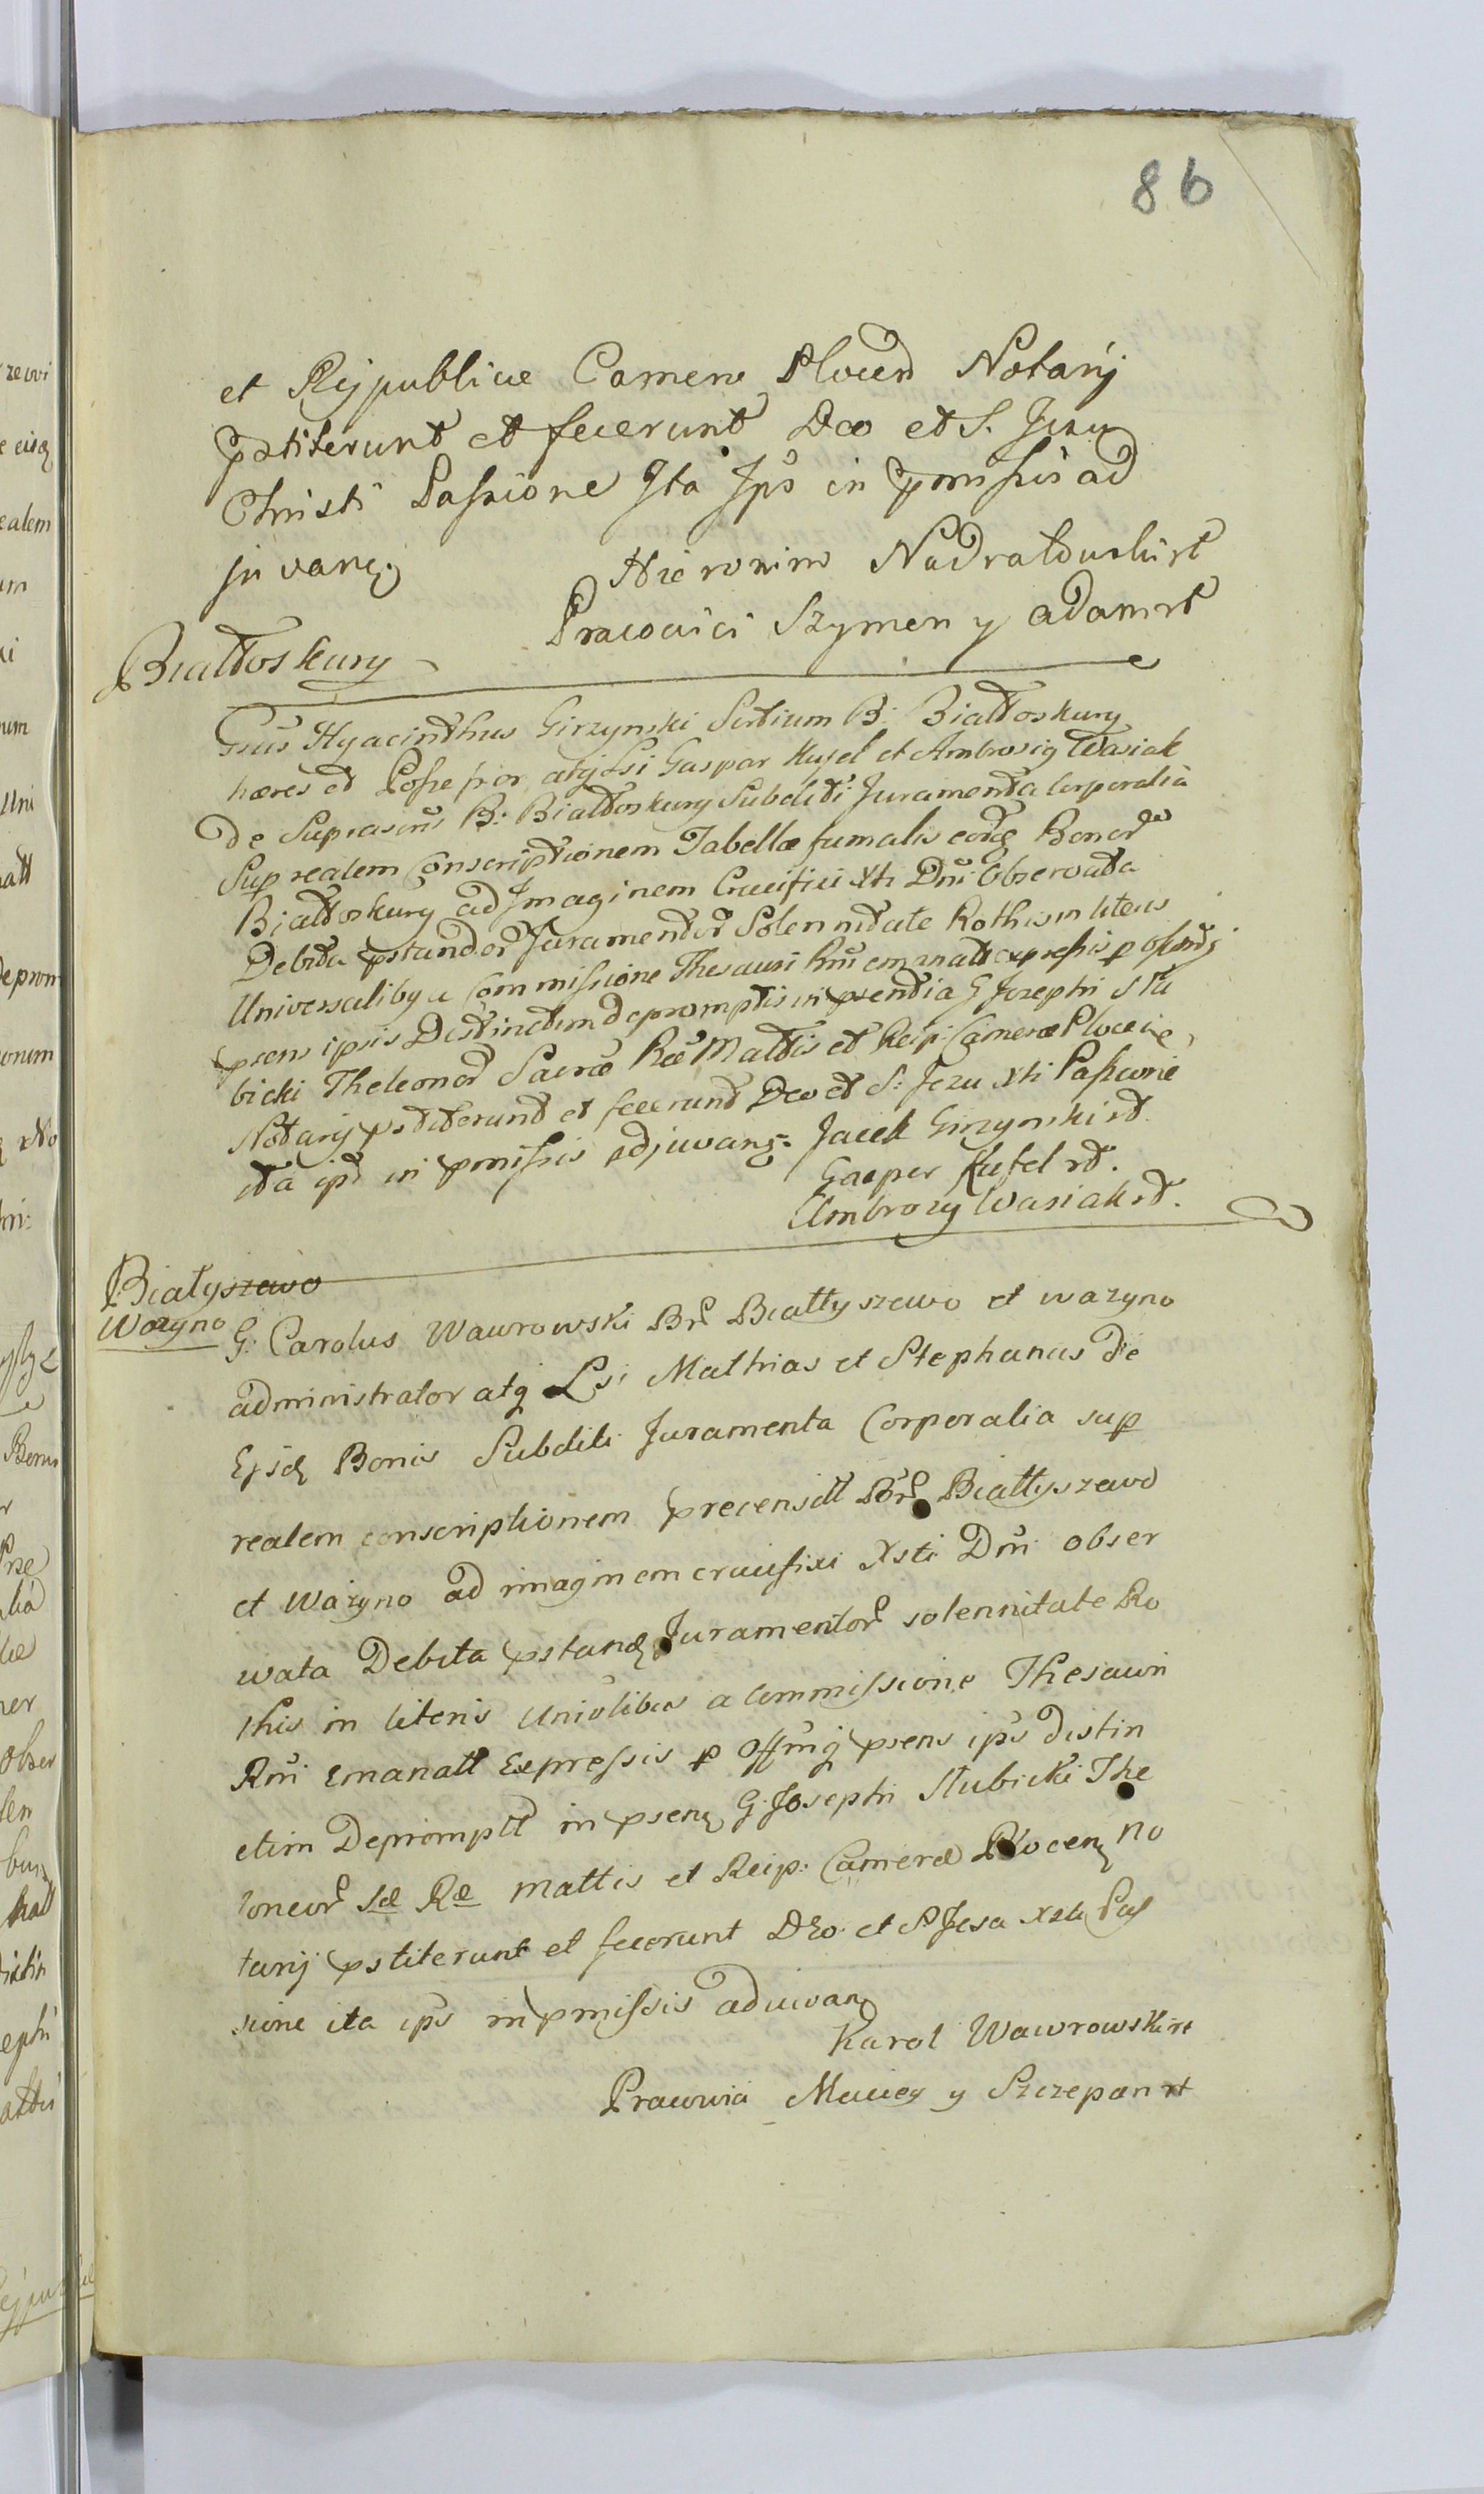 86
et Reijpublicae Camere Plocen Notarij
pstiterunt et fecerunt Deo et S. Jezu
Christi Passione Ita Ips in pmissis ad
juvang
Hieronim Nadratowskirt
Pracowici Szymon y adamrt
Białłoskury
Gsus Hyacinthus Girzynski Sortium B: Białłoskury
hæres et Possessor atq Lsi Gaspar Kufel et Ambrosig Wasiak
de Suprascris B: Białłoskury Subditi Juramenta Corporalia
Sup realem Conscriptionem Tabellæ fumalis eordg Bonor
Białłoskury ad Imaginem Crucifixi Xti Dni Observata
Debita pstandor Juramentor Solennitate Rothis in literis
Universalibg a Commissione Thesauri Rni emanatt expressis p
psens ipsis Distinctim depromptis in psentia G Josephi Stu
bicki Theleonor Sacræ Ræ Mattis et Reip: Cameræ Plocen
Notarij pstiterunt et fecerunt Deo et S: Jezu Xti Passione
ita ips in pmissis adjuvang. Jacek Girzynski rt
Gasper Kufel rt.
Ambrozy Wasiak rt.
Białyszewo
Wazyno
G: Carolus Wawrowski Br Białłyszewo et wazyno
administrator atq Lsi Mathias et Stephanus de
Ejsd Bonis Subditi Juramenta Corporalia sup
realem conscriptionem precensitt Br Białłyszewo
et Wazyno ad imaginem crucifixi Xsti Dni obser
wata Debita pstand Juramentor solennitate Ro
this in literis Univlibus a Commissione Thesauri
Rni Emanatt Expressis p Offmq psens ips distin
ctim Depromptt in psen G. Josephi Stubicki The
loneor Sæ Ræ Mattis et Reip: Cameræ Plocen no
tarij pstiterunt et fecerunt Deo et S Jesu Xsti Pas
sione ita ips in pmissis adiuvan
Karol Wawrowski rt
Pracowici Maciey y Szczepan rt